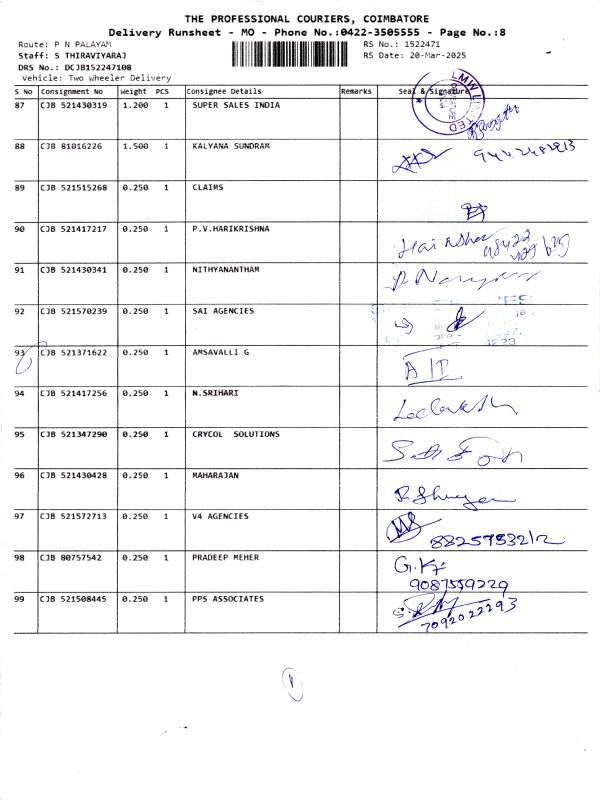 THE PROFESSIONAL COURIERS, COIMBATORE
Delivery Runsheet - MO - Phone No.:0422-3505555 - Page No.:8
Route: P N PALAYAM RS No.: 1522471
Staff: S THIRAVIYARAJ RS Date: 20-Mar-2025
DRS No.: DCJB152247108
Vehicle: Two Wheeler Delivery
S No Consignment No Weight PCS Consignee Details Remarks Seal & Signature
87 CJB 521430319 1.200 1 SUPER SALES INDIA
LMW LIMITED
88 CJB 81016226 1.500 1 KALYANA SUNDRAM
89 CJB 521515268 0.250 1 CLAIMS
90 CJB 521417217 0.250 1 P.V.HARIKRISHNA
91 CJB 521430341 0.250 1 NITHYANANTHAM
92 CJB 521570239 0.250 1 SAI AGENCIES
93 CJB 521371622 0.250 1 AMSAVALLI G
94 CJB 521417256 0.250 1 N.SRIHARI
95 CJB 521347290 0.250 1 CRYCOL SOLUTIONS
96 CJB 521430428 0.250 1 MAHARAJAN
97 CJB 521572713 0.250 1 V4 AGENCIES
98 CJB 80757542 0.250 1 PRADEEP MEHER
9087559229
99 CJB 521508445 0.250 1 PPS ASSOCIATES
7092022293